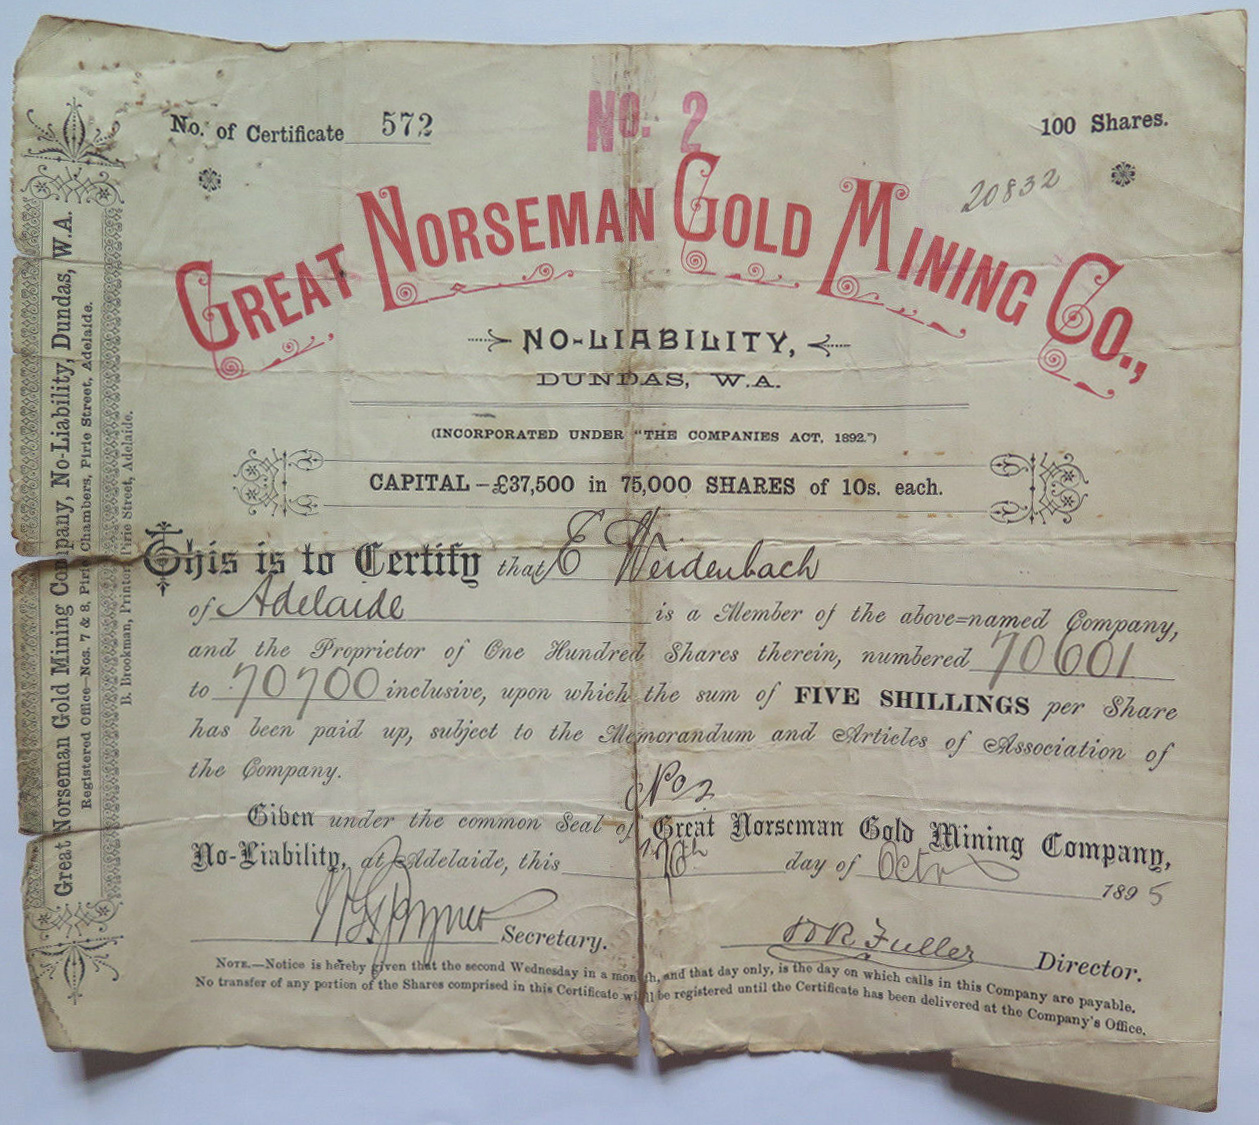 No. of Certificate 572
No. 2
100 Shares.
20832
GREAT NORSEMAN GOLD MINING CO.,
NO-LIABILITY,
DUNDAS, W.A.
(INCORPORATED UNDER "THE COMPANIES ACT, 1892.")
CAPITAL – £37,500 in 75,000 SHARES of 10s. each.
This is to Certify that E Weidenbach
of Adelaide is a Member of the above=named Company,
and the Proprietor of One Hundred Shares therein, numbered 70601
to 70700 inclusive, upon which the sum of FIVE SHILLINGS per Share
has been paid up, subject to the Memorandum and Articles of Association of
the Company.
No 2
Given under the common Seal of Great Norseman Gold Mining Company,
No-Liability, at Adelaide, this day of Octr 1895
Secretary.
D R Fuller Director.
NOTE.—Notice is hereby given that the second Wednesday in a month, and that day only, is the day on which calls in this Company are payable.
No transfer of any portion of the Shares comprised in this Certificate will be registered until the Certificate has been delivered at the Company's Office.
Great Norseman Gold Mining Company, No-Liability, Dundas, W.A.
Registered Office—Nos. 7 & 8, Pirie Chambers, Pirie Street, Adelaide.
B. Brookman, Printer, Pirie Street, Adelaide.